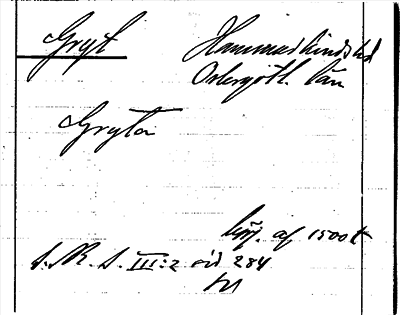 Gryt Hammarkinds hd
Östergötl. län
Gryta
börj. af 1500 t
S. R. S. III:2 sid 284